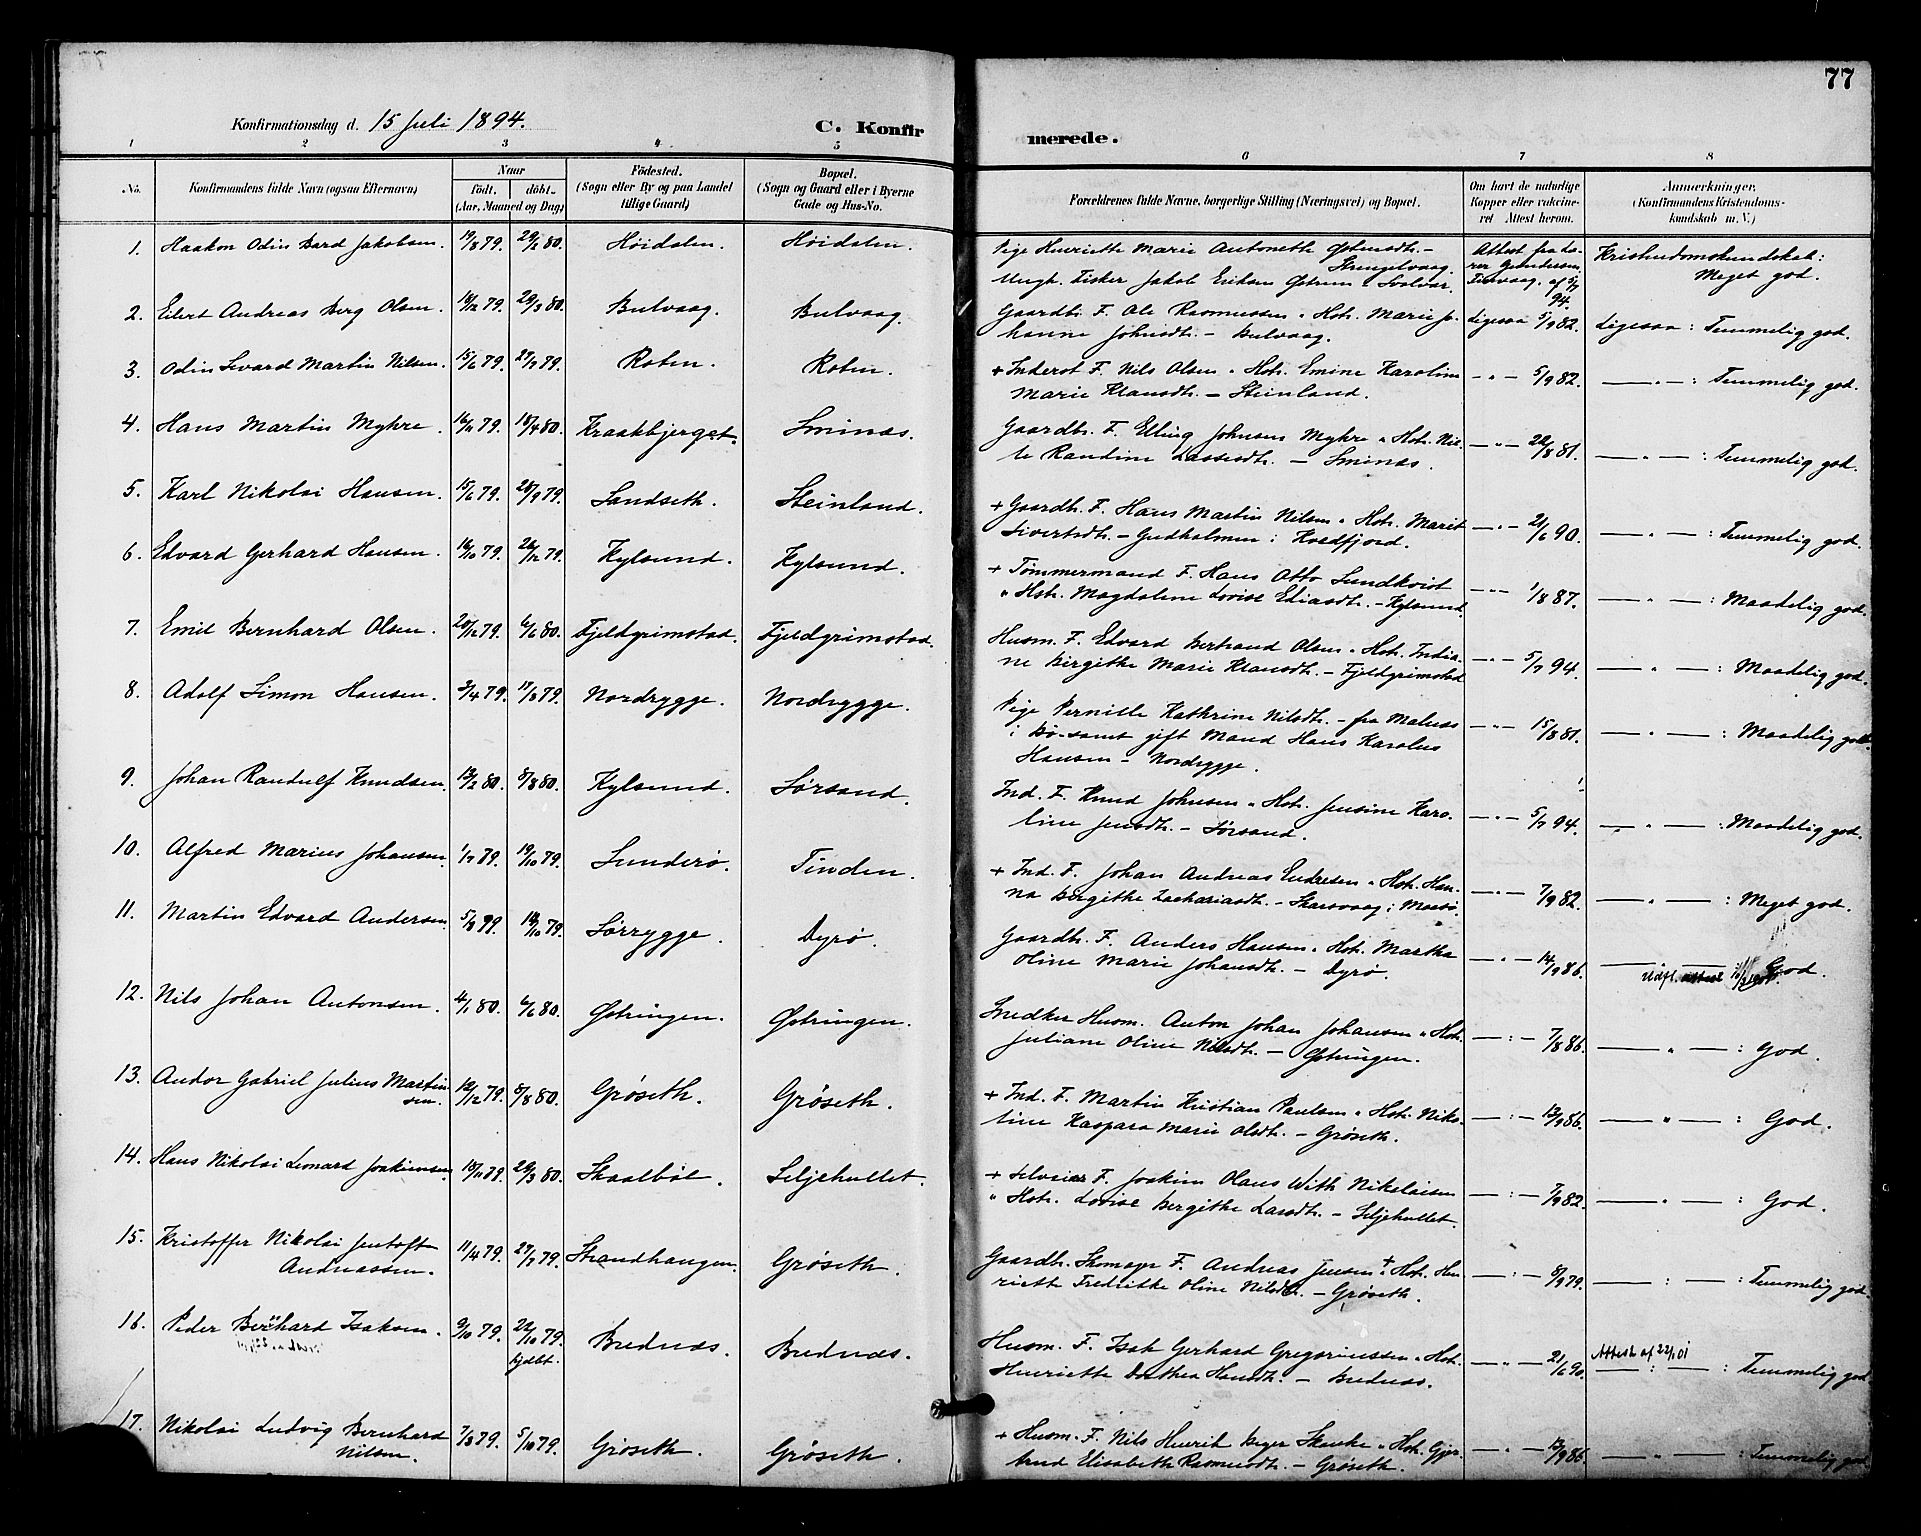 77
Konfirmationsdag d. 15 Juli 1894.
C. Konfir
merede.
1 2 3 4 5
6 7 8
No.
Konfirmandens fulde Navn (ogsaa Efternavn)
Naar
födt, döbt.
(Aar, Maaned og Dag)
Födested.
(Sogn eller By og paa Landet
tillige Gaard)
Bopæl.
(Sogn og Gaard eller i Byerne
Gade og Hus-No.
Forældrenes fulde Navne, borgerlige Stilling (Næringsvei) og Bopæl.
Om havt de naturlige
Kopper eller vakcine-
ret Attest herom.
Anmærkninger.
(Konfirmandens Kristendoms-
kundskab m. V.)
1. Haakon Odin Bard Jakobsen. 19/8 79. 29/2 80. Höidalen. Höidalen.
Pige Henriette Marie Antoneth Østensdtr. –
Strengelvaag.
Ungk. Fisker Jakob Eriksen Østrem – Svolvær.
Attest fra Læ-
rer Gundersen,
Finvaag, af 5/7
94.
Kristendomskundskab:
Meget god.
2. Eilert Andreas Berg Olsen. 14/12 79. 29/3 80. Bulvaag. Bulvaag.
Gaardbr. F. Ole Rasmussen " Hst. Marie Jo-
hanne Johnsdtr. – Bulvaag.
Ligesaa 5/9 82. Ligesaa: Temmelig god.
3. Odin Sivard Martin Nilsen. 15/6 79. 27/7 79. Roten. Roten.
+ Inderst F. Nils Olsen " Hst. Emine Karoline
Marie Klausdtr. – Steinland.
– " – 5/9 82. – " – : Temmelig god.
4. Hans Martin Myhre. 16/11 79. 18/4 80. Kraakbjerget. Sminæs.
Gaardbr. F. Elling Johnsen Myhre " Hst. Nil-
le Randine Lassesdtr. – Sminæs.
– " – 22/8 81. – " – : Temmelig god.
5. Karl Nikolai Hansen. 15/6 79. 28/9 79. Sandseth. Steinland.
+ Gaardbr. F. Hans Martin Nilsen " Hst. Marit
Sivertsdtr. – Gudholmen i Kvædfjord.
– " – 21/6 90. – " – : Temmelig god.
6. Edvard Gerhard Hansen. 16/10 79. 26/12 79. Kylsund. Kylsund.
+ Tömmermand F. Hans Otto Lundkvist
" Hst. Magdalene Lovise Ediasdtr. – Kylsund.
– " – 1/8 87. – " – : Maadelig god.
7. Emil Bernhard Olsen. 20/12 79. 6/6 80. Fjeldgrimstad. Fjeldgrimstad.
Husm. F. Edvard Bertrand Olsen " Hst. India-
ne Birgithe Marie Klausdtr. – Fjeldgrimstad
– " – 5/7 94. – " – : Maadelig god.
8. Adolf Simon Hansen. 3/4 79. 17/8 79. Nordrygge. Nordrygge.
Pige Pernille Kathrine Nilsdtr. – fra Malnæs
i Bø – samt gift Mand Hans Karolus
Hansen – Nordrygge.
– " – 15/8 81. – " – : Maadelig god.
9. Johan Randulf Knudsen. 12/2 80. 8/8 80. Kylsund. Sørsand.
Ind. F. Knud Johnsen " Hst. Jensine Karo-
line Jensdtr. – Sørsand.
– " – 5/7 94. – " – : Maadelig god.
10. Alfred Marius Johansen. 1/7 79. 19/10 79. Sunderø. Tinden.
+ Ind. F. Johan Andreas Endresen " Hst. Han-
na Birgithe Zachariasdtr. – Skarsvaag i Maasø.
– " – 7/9 82. – " – : Meget god.
11. Martin Edvard Andersen. 5/8 79. 12/10 79. Sørrygge. Dyrø.
Gaardbr. F. Anders Hansen " Hst. Martha
Oline Marie Johansdtr. – Dyrø.
– " – 14/9 86. – " – : God.
Udft. attest
12. Nils Johan Antonsen. 4/1 80. 6/6 80. Østringen. Østringen.
Snedker Husm. Anton Johan Johansen " Hst.
Juliane Oline Nilsdtr. – Østringen.
– : – 7/8 86. – " – : God.
13. Andor Gabriel Julius Martin
sen. 12/12 79. 8/8 80. Grøseth. Grøseth.
+ Ind. F. Martin Kristian Paulsen " Hst. Niko-
line Kaspara Marie Olsdtr. – Grøseth.
– : – 13/9 86. – " – : God.
14. Hans Nikolai Leonard Joakimsen. 18/11 79. 29/3 80. Skaalböl. Seljehullet.
+ Selveier F. Joakim Olaus With Nikolaisen
" Hst. Lovise Bergithe Larsdtr. – Seljehullet.
– : – 7/9 82. – " – : God.
15. Kristoffer Nikolai Jentoft
Andreassen. 11/4 79. 27/7 79. Strandhaugen. Grøseth.
Gaardbr. Skomager F. Andreas Jensen + " Hst. Hen-
riette Fredrikke Oline Nilsdtr. – Grøseth.
– : – 8/9 79. – : – : Temmelig god.
16. Peder Bernhard Isaksen. 9/10 79. 22/10 79.
hjdbt. Brednæs. Brednæs.
Husm. F. Isak Gerhard Gregoriussen " Hst.
Henriette Dorthea Hansdtr. – Brednæs.
– " – 21/6 90. Attest af 22/1 01
– : – : Temmelig god
17. Nikolai Ludvig Bernhard
Nilsen. 7/8 79. 5/10 79. Grøseth. Grøseth.
+ Husm. F. Nils Henrik Beyer Skanke " Hst. Gjer-
trud Elisabeth Rasmusdtr. – Grøseth.
– " – 13/9 86. – " – : Temmelig god.